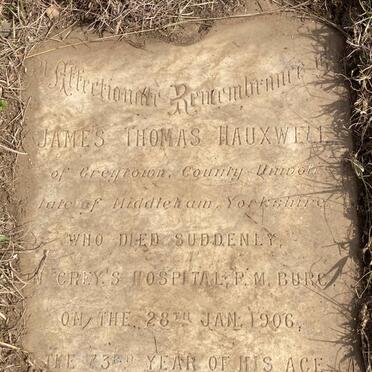 In Affectionate Remembrance
JAMES THOMAS HAUXWELL
of Greytown, County Umvoti
late of Middleham, Yorkshire
WHO DIED SUDDENLY,
IN GREY'S HOSPITAL, P.M. BURG,
ON THE 28TH JAN. 1906,
THE 73RD YEAR OF HIS AGE